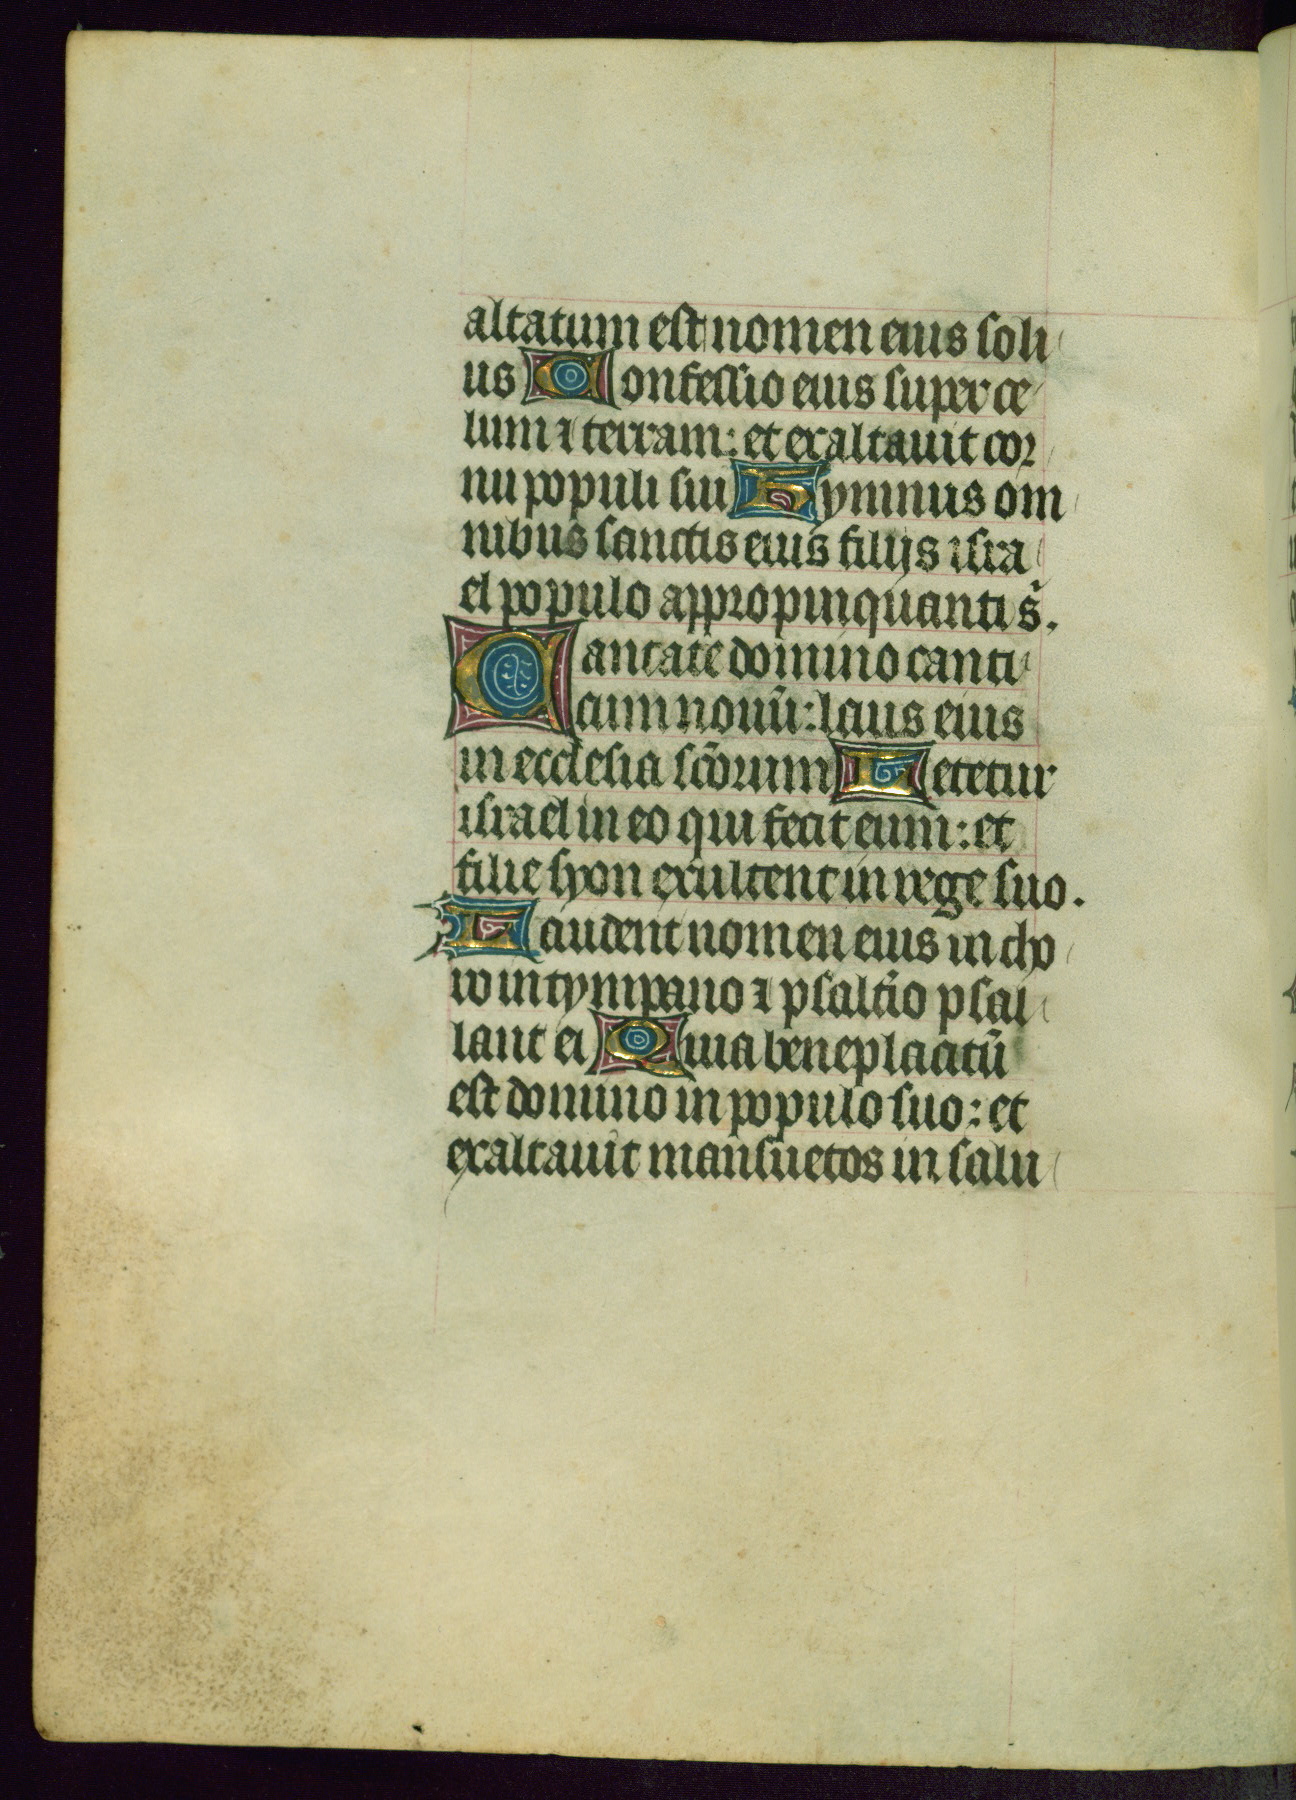 altatum est nomen eius soli
us Confessio eius super ce
lum ⁊ terram: et exaltauit cor
nu populi sui Hymnus om
nibus sanctis eius filijs isra
el populo appropinquanti s̄.
Cantate domino canti
cum nouū: laus eius
in ecclesia scōrum Letetur
israel in eo qui fecit eum: et
filie syon exultent in rege suo.
Laudent nomen eius in cho
ro in tympano ⁊ psaltīo psal
lant ei Quia beneplacitū
est domino in populo suo: et
exaltauit mansuetos in salu